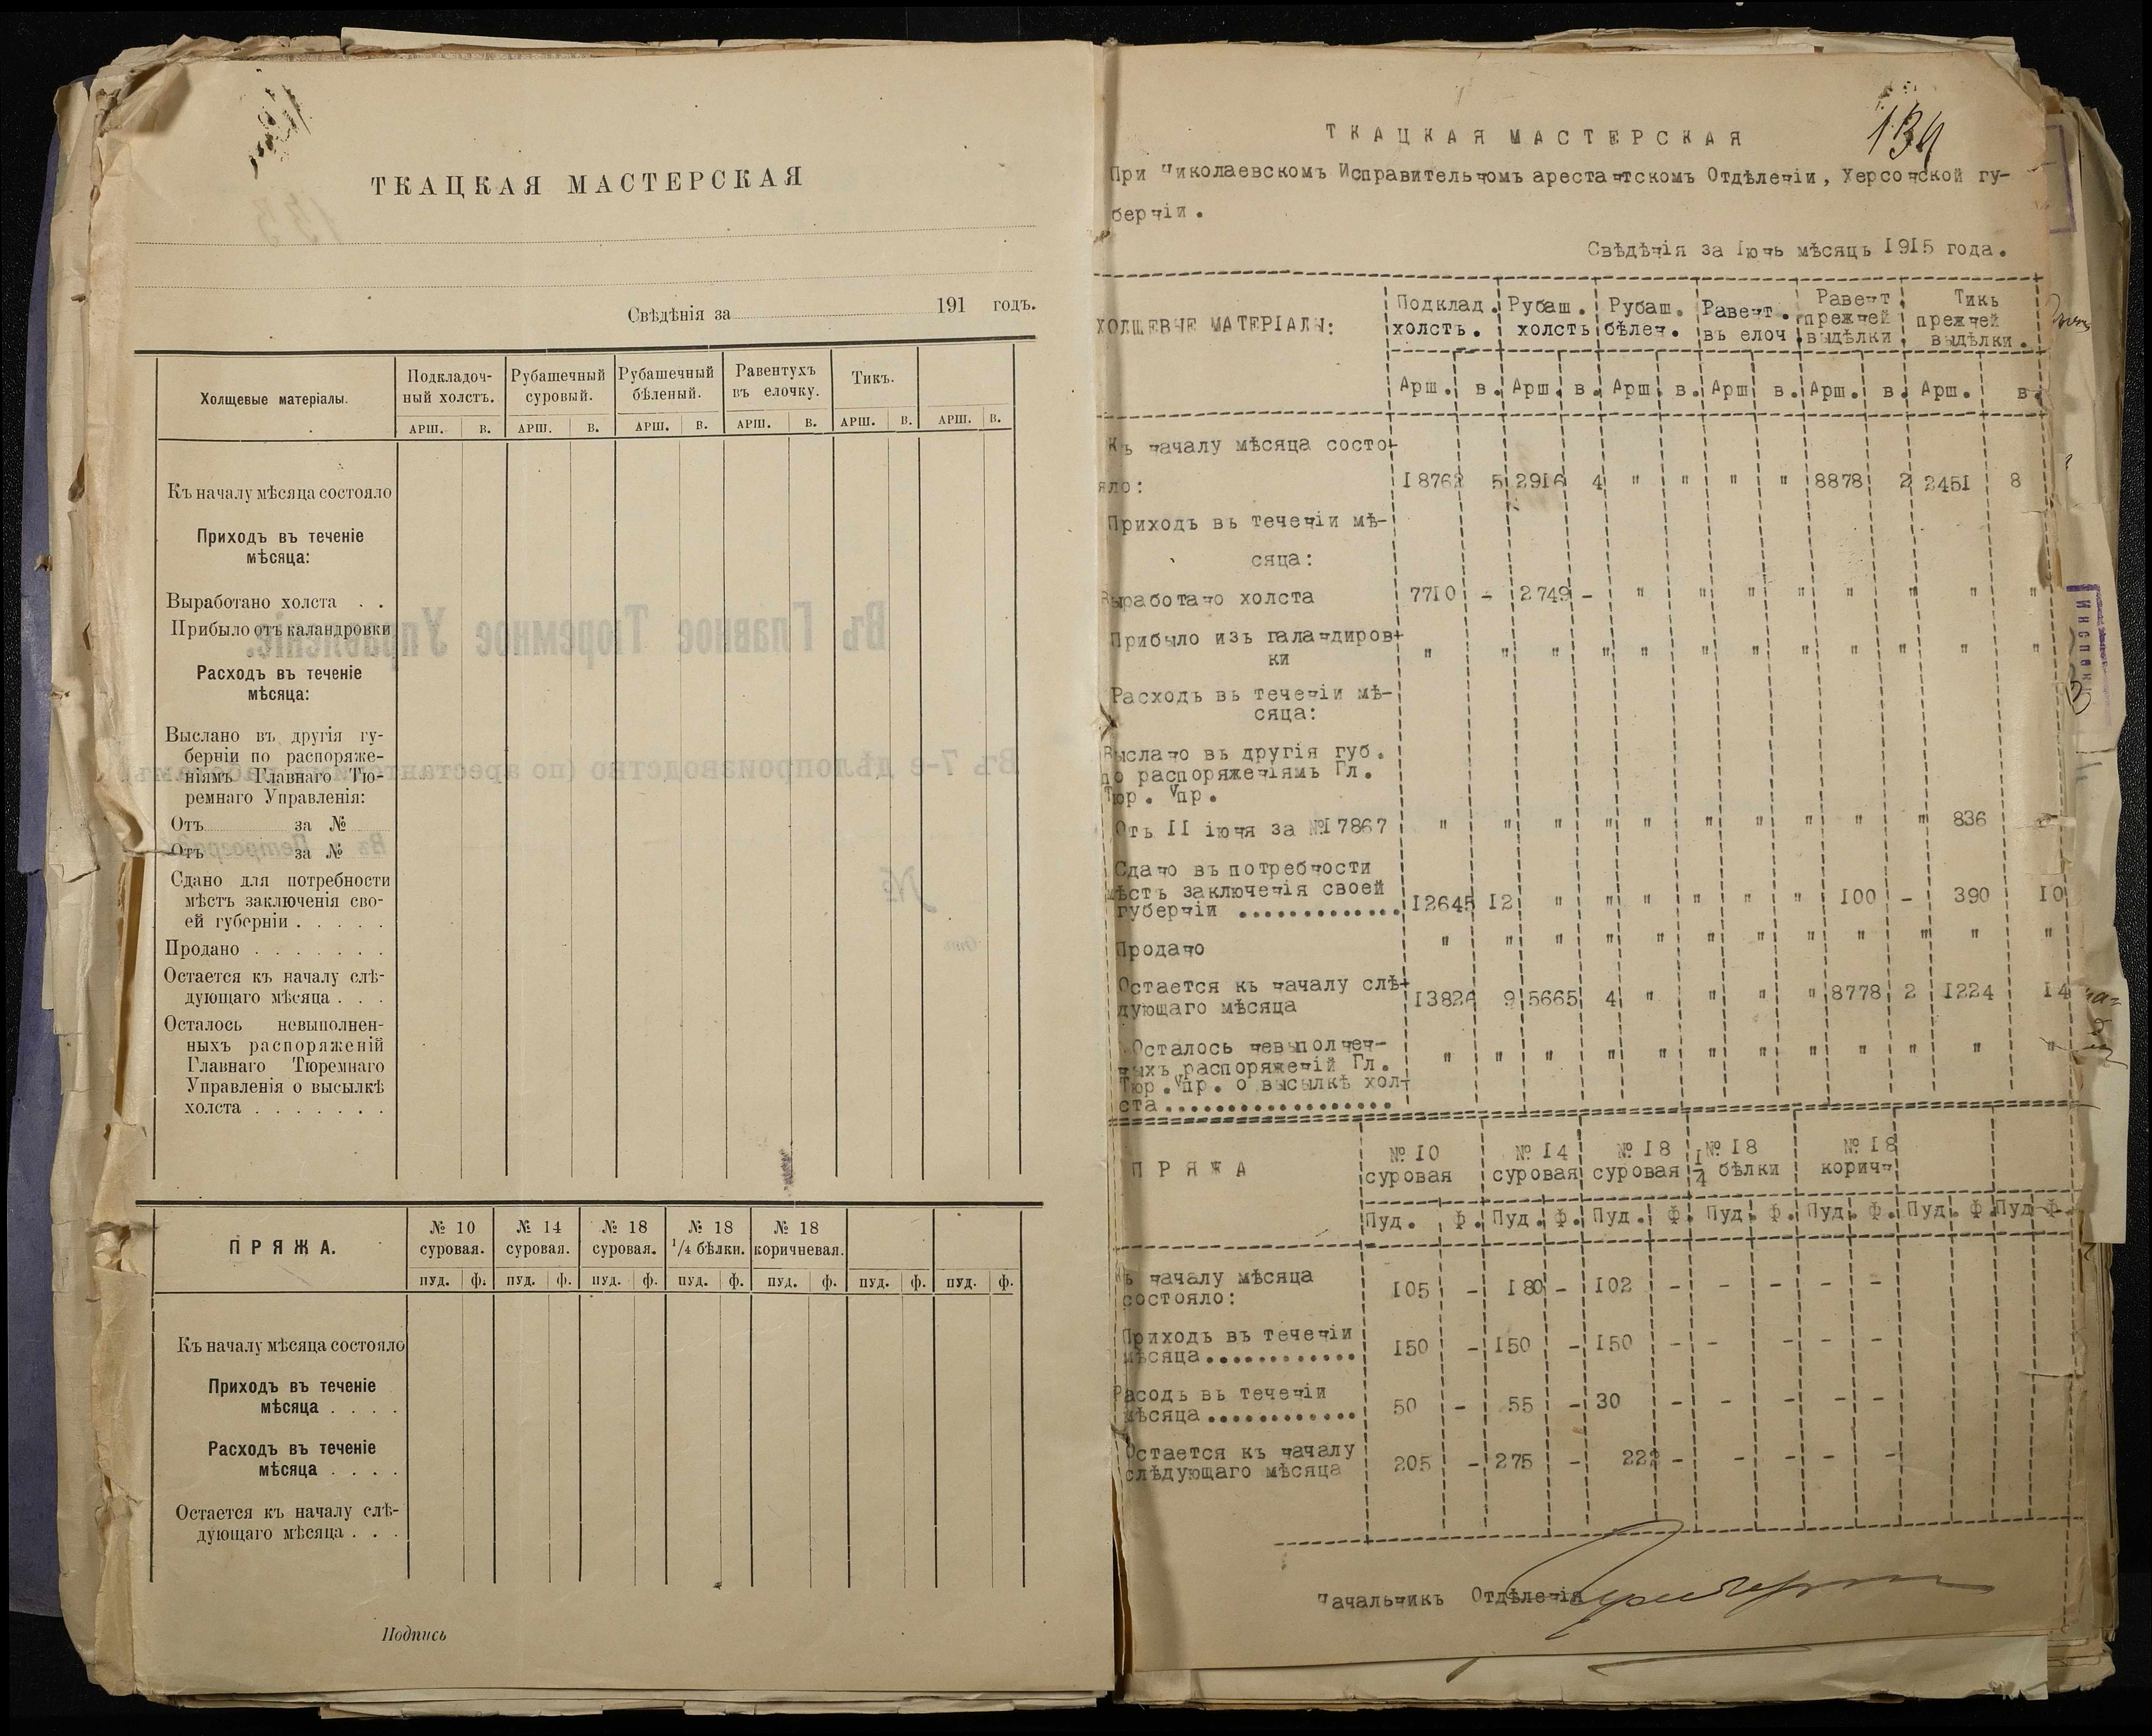 ТКАЦКАЯ МАСТЕРСКАЯ
Свѣдѣнія за 191 годъ.
Холщевые матеріалы.
Подкладочный холстъ.
Рубашечный суровый.
Рубашечный бѣленый.
Равентухъ въ елочку.
Тикъ.
АРШ. В. АРШ. В. АРШ. В. АРШ. В. АРШ. В. АРШ. В.
Къ началу мѣсяца состояло
Приходъ въ теченіе
мѣсяца:
Выработано холста . .
Прибыло отъ каландровки
Расходъ въ теченіе
мѣсяца:
Выслано въ другія гу-
берніи по распоряже-
ніямъ Главнаго Тю-
ремнаго Управленія:
Отъ за №
Отъ за №
Сдано для потребности
мѣстъ заключенія сво-
ей губерніи . . . . .
Продано . . . . . . .
Остается къ началу слѣ-
дующаго мѣсяца . . .
Осталось невыполнен-
ныхъ распоряженій
Главнаго Тюремнаго
Управленія о высылкѣ
холста . . . . . . .
ПРЯЖА.
№ 10 суровая.
№ 14 суровая.
№ 18 суровая.
№ 18 1/4 бѣлки.
№ 18 коричневая.
ПУД. Ф. ПУД. Ф. ПУД. Ф. ПУД. Ф. ПУД. Ф. ПУД. Ф. ПУД. Ф.
Къ началу мѣсяца состояло
Приходъ въ теченіе
мѣсяца . . . .
Расходъ въ теченіе
мѣсяца . . . .
Остается къ началу слѣ-
дующаго мѣсяца . . .
Подпись
134
ТКАЦКАЯ МАСТЕРСКАЯ
При Николаевскомъ Исправительномъ арестантскомъ Отдѣленіи, Херсонской гу-
берніи.
Свѣдѣнія за Iюнь мѣсяцъ 1915 года.
ХОЛЩЕВЫЕ МАТЕРІАЛЫ:
Подклад. холсть.
Рубаш. холсть
Рубаш. бѣлен.
Равент. въ елоч.
Равент. прежней выдѣлки
Тикь прежней выдѣлки.
Арш. в. Арш. в. Арш. в. Арш. в. Арш. в. Арш. в.
Къ началу мѣсяца состо-
яло: 18762 5 2916 4 " " " " 8878 2 2451 8
Приходъ въ теченіи мѣ-
сяца:
Выработано холста 7710 - 2749 - " " " " " " " "
Прибыло изъ галандиров-
ки " " " " " " " " " " " "
Расходъ въ теченіи мѣ-
сяца:
Выслано въ другія губ.
по распоряженіямъ Гл.
Тюр. Упр.
Отъ II іюня за №17867 " " " " " " " " " " 836
Сдано въ потребности
мѣстъ заключенія своей
губерніи ............. 12645 12 " " " " " " 100 - 390 10
Продано " " " " " " " " " " " "
Остается къ началу слѣ-
дующаго мѣсяца 13826 9 5665 4 " " " " 8778 2 1224 14
Осталось невыполнен-
ныхъ распоряженій Гл.
Тюр. Упр. о высылкѣ хол-
ста.................. " " " " " " " " " " " "
ПРЯЖА
№ 10 суровая
№ 14 суровая
№ 18 суровая
№ 18 1/4 бѣлки
№ 18 коричн
Пуд. Ф. Пуд. Ф. Пуд. Ф. Пуд. Ф. Пуд. Ф. Пуд. Ф. Пуд. Ф.
Къ началу мѣсяца
состояло: 105 - 180 - 102 - - - - -
Приходъ въ теченіи
мѣсяца............ 150 - 150 - 150 - - - - -
Расодъ въ теченіи
мѣсяца............ 50 - 55 - 30 - - - - -
Остается къ началу
слѣдующаго мѣсяца 205 - 275 - 222 - - - - -
Начальникъ Отдѣленія